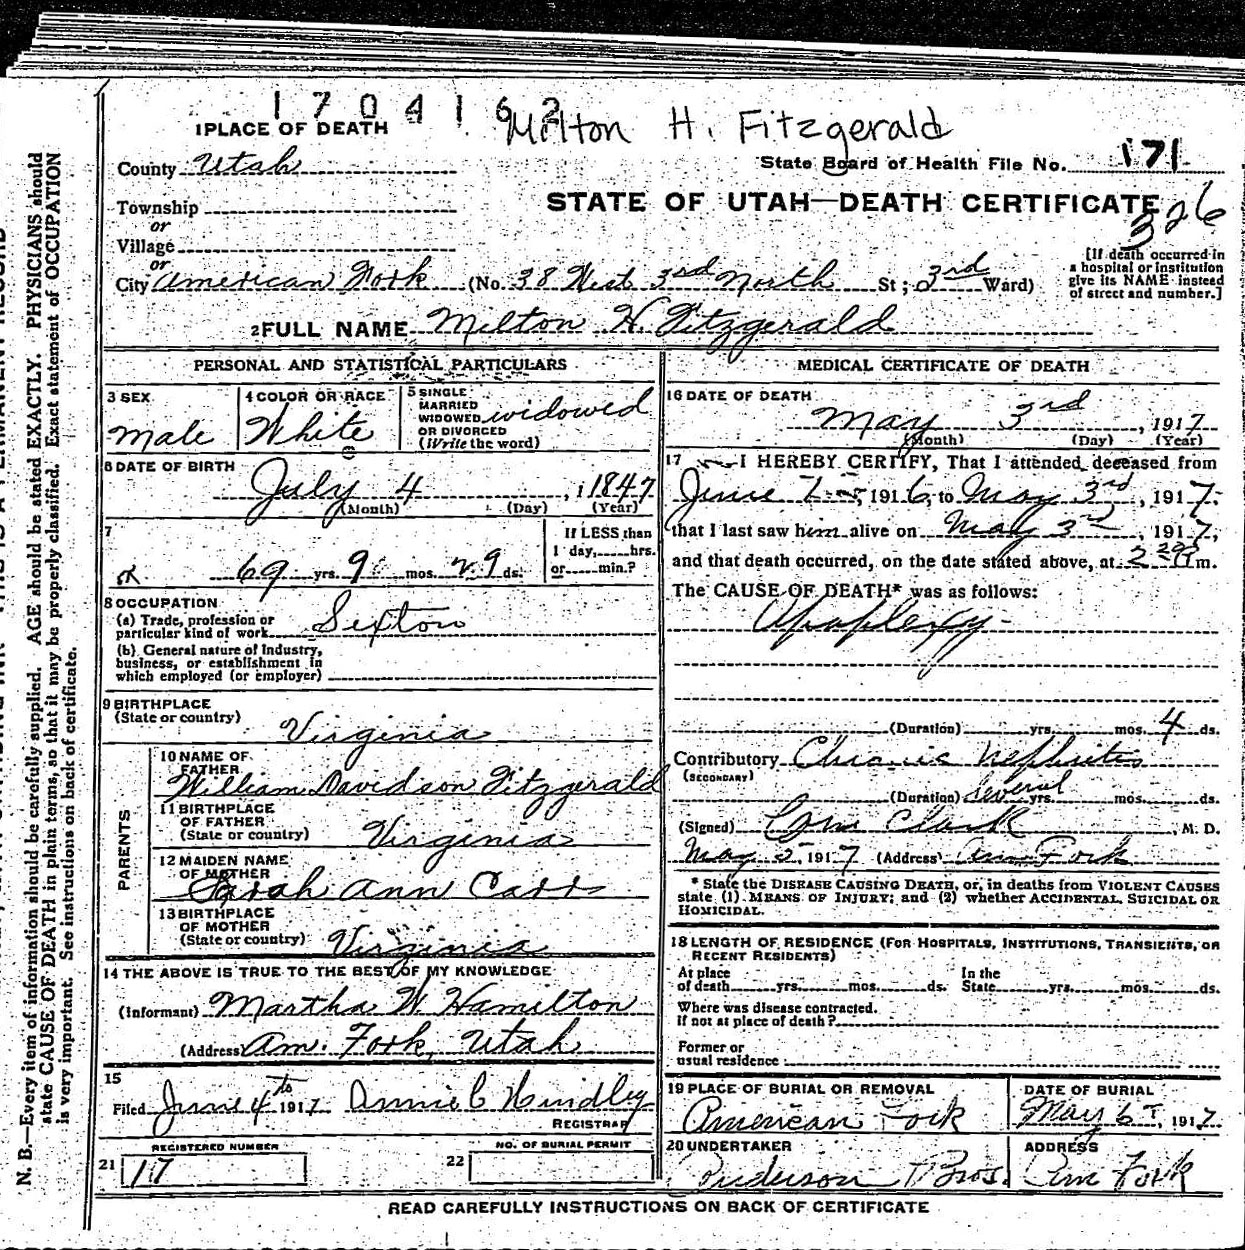 1704162
Milton H. Fitzgerald
1 PLACE OF DEATH
State Board of Health File No. 171
County Utah
STATE OF UTAH—DEATH CERTIFICATE
326
Township
or
Village
or
City American Fork (No. 38 West 3rd North St; 3rd Ward)
[If death occurred in a hospital or institution give its NAME instead of street and number.]
2 FULL NAME Milton H. Fitzgerald
PERSONAL AND STATISTICAL PARTICULARS
3 SEX
Male
4 COLOR OR RACE
White
5 SINGLE
MARRIED
WIDOWED
OR DIVORCED
(Write the word)
widowed
6 DATE OF BIRTH
July 4, 1847
(Month) (Day) (Year)
7
69 yrs. 9 mos. 29 ds.
If LESS than
1 day, hrs.
or min.?
8 OCCUPATION
(a) Trade, profession or
particular kind of work Sexton
(b) General nature of Industry,
business, or establishment in
which employed (or employer)
9 BIRTHPLACE
(State or country) Virginia
PARENTS
10 NAME OF
FATHER
William Davidson Fitzgerald
11 BIRTHPLACE
OF FATHER
(State or country) Virginia
12 MAIDEN NAME
OF MOTHER
Sarah Ann
13 BIRTHPLACE
OF MOTHER
(State or country) Virginia
14 THE ABOVE IS TRUE TO THE BEST OF MY KNOWLEDGE
(Informant) Martha W Hamilton
(Address) Am. Fork, Utah
15
Filed June 4th 1917 Annie C Hindley
REGISTRAR
REGISTERED NUMBER
21 17
NO. OF BURIAL PERMIT
22
MEDICAL CERTIFICATE OF DEATH
16 DATE OF DEATH
May 3rd, 1917
(Month) (Day) (Year)
17 I HEREBY CERTIFY, That I attended deceased from
June 1916, to May 3rd, 1917.
that I last saw him alive on May 3rd, 1917,
and that death occurred, on the date stated above, at m.
The CAUSE OF DEATH* was as follows:
Apoplexy
(Duration) yrs. mos. 4 ds.
Contributory Chronic Nephritis
(SECONDARY)
(Duration) several yrs. mos. ds.
(Signed) Clark, M. D.
May 5, 1917 (Address) Am Fork
* State the DISEASE CAUSING DEATH, or, in deaths from VIOLENT CAUSES
state (1) MEANS OF INJURY; and (2) whether ACCIDENTAL, SUICIDAL OR
HOMICIDAL.
18 LENGTH OF RESIDENCE (FOR HOSPITALS, INSTITUTIONS, TRANSIENTS, OR
RECENT RESIDENTS)
At place
of death yrs. mos. ds.
In the
State yrs. mos. ds.
Where was disease contracted.
if not at place of death?
Former or
usual residence
19 PLACE OF BURIAL OR REMOVAL
American Fork
DATE OF BURIAL
May 6, 1917
20 UNDERTAKER
Anderson Bros.
ADDRESS
Am Fork
READ CAREFULLY INSTRUCTIONS ON BACK OF CERTIFICATE
N. B.—Every item of information should be carefully supplied. AGE should be stated EXACTLY. PHYSICIANS should
state CAUSE OF DEATH in plain terms, so that it may be properly classified. Exact statement of OCCUPATION
is very important. See instructions on back of certificate.